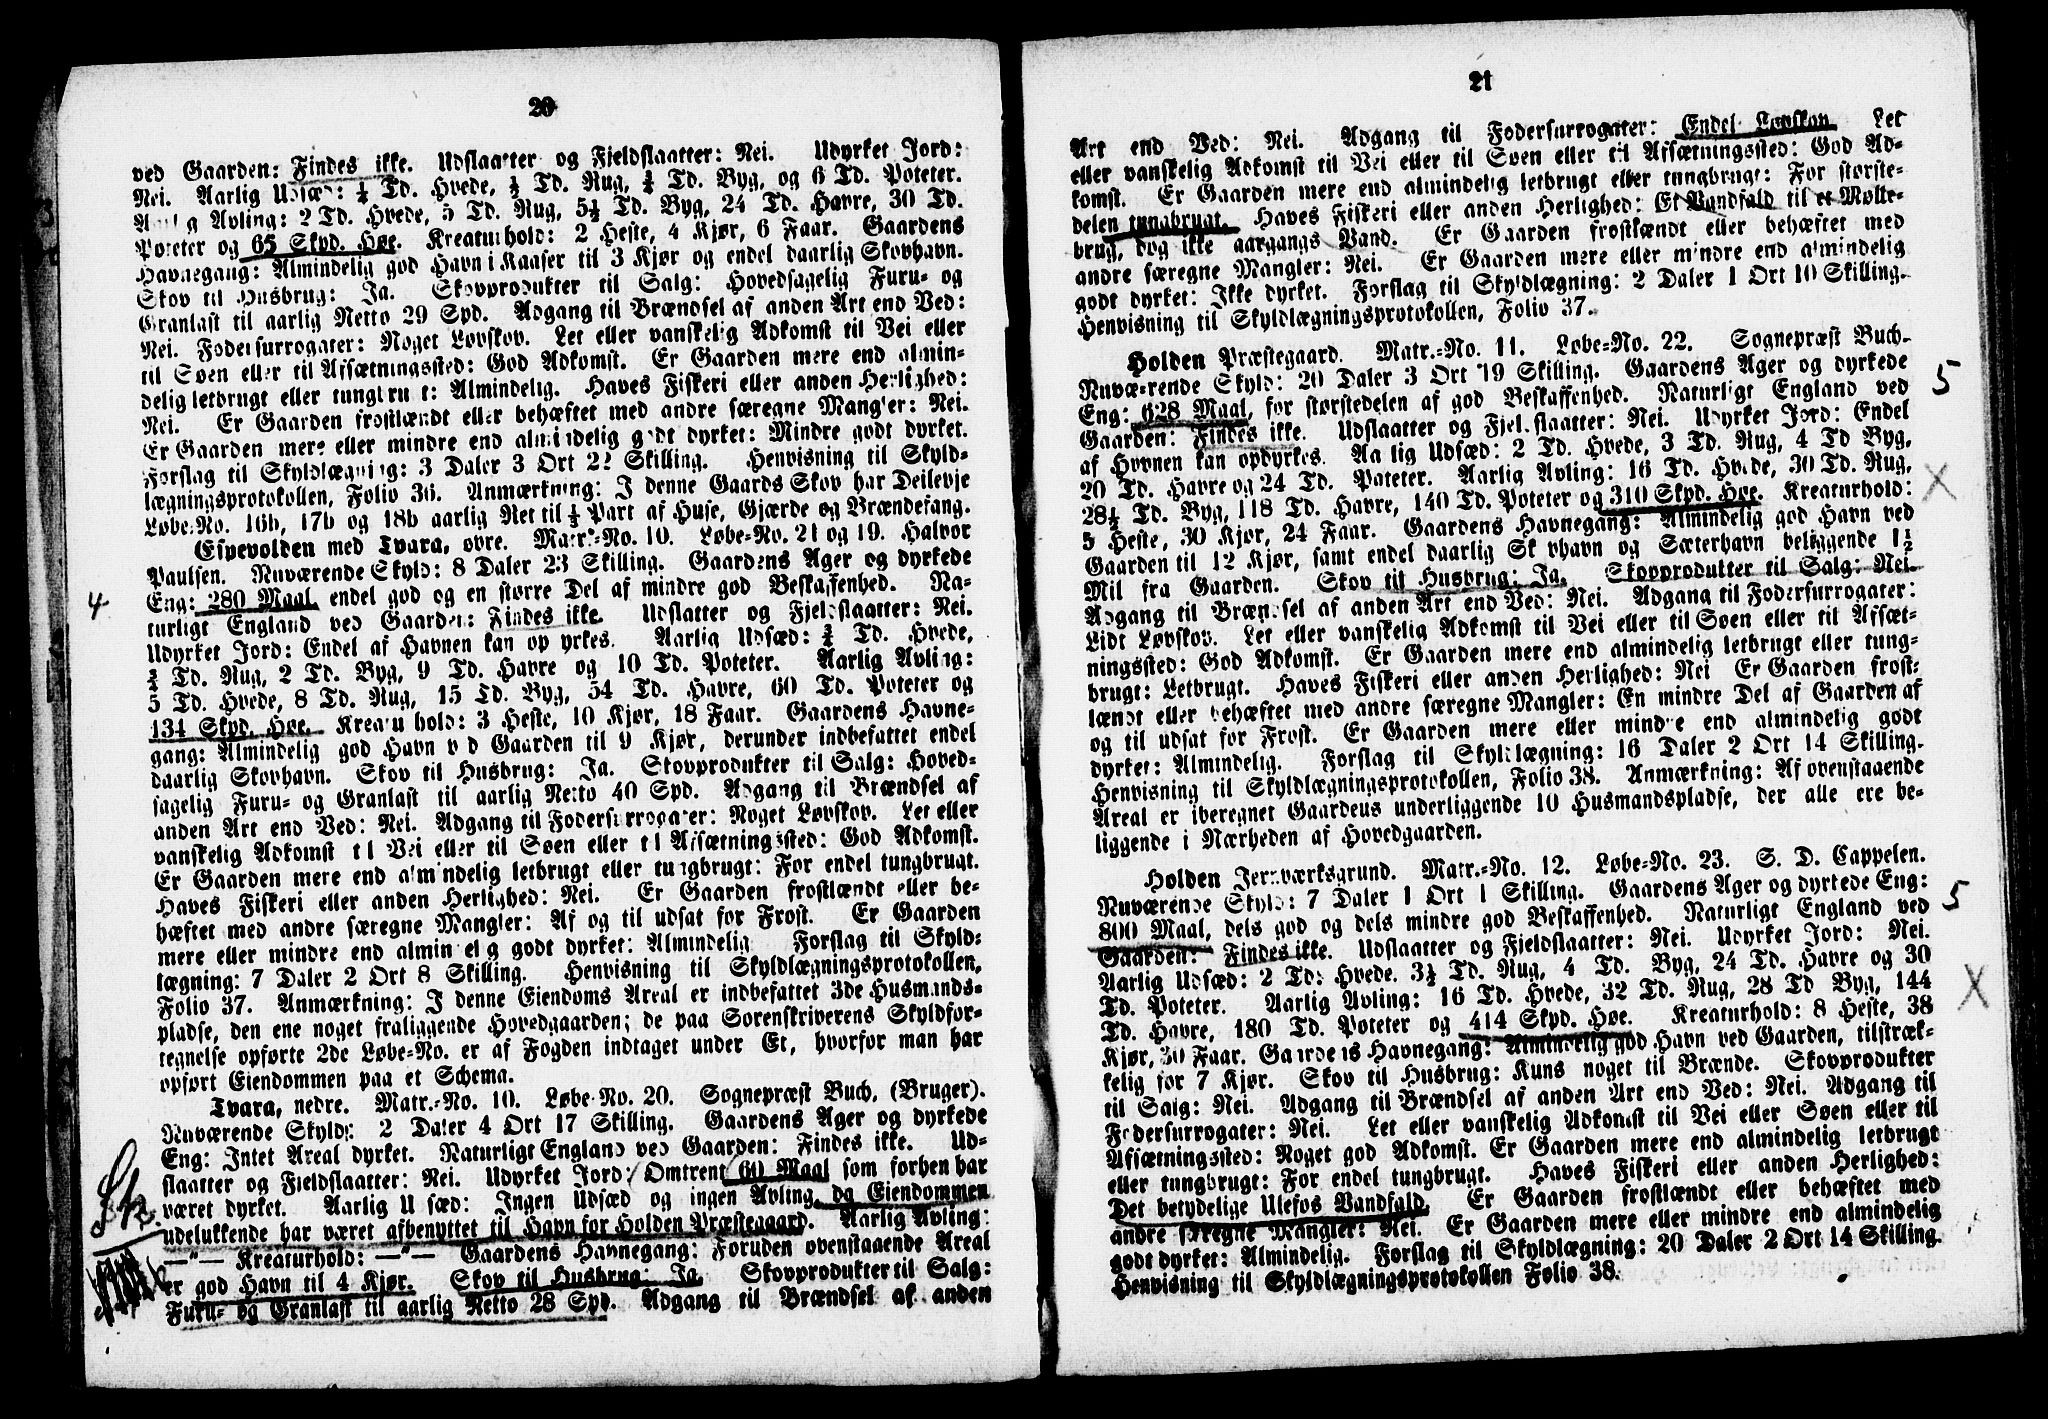 20
ved Gaarden: Findes ikke. Udslaatter og Fjeldslaatter: Nei. Udyrket Jord:
Nei. Aarlig Udsæd: ¼ Td. Hvede, Td. Rug, Td. Byg, og 6 Td. Poteter.
Aarlig Avling: 2 Td. Hvede, 5 Td. Rug, 5½ Td. Byg, 24 Td. Havre, 30 Td.
Poteter og 65 Skpd. Høe. Kreaturhold: 2 Heste, 4 Kjør, 6 Faar. Gaardens
Havnegang: Almindelig god Havn i Kaaser til 3 Kjør og endel daarlig Skovhavn.
Skov til Husbrug: Ja. Skovprodukter til Salg: Hovedsagelig Furu- og
Granlast til aarlig Netto 29 Spd. Adgang til Brændsel af anden Art end Ved:
Nei. Fodersurrogater: Noget Løvskov. Let eller vanskelig Adkomst til Vei eller
til Søen eller til Afsætningssted: God Adkomst. Er Gaarden mere end almin-
delig letbrugt eller tungbrugt: Almindelig. Haves Fiskeri eller anden Herlighed:
Nei. Er Gaarden frostlændt eller behæftet med andre særegne Mangler: Nei.
Er Gaarden mere eller mindre end almindelig godt dyrket: Mindre godt dyrket.
Forslag til Skyldlægning: 3 Daler 3 Ort 22 Skilling. Henvisning til Skyld-
lægningsprotokollen, Folio 36. Anmærkning: I denne Gaards Skov har Deilevje
Løbe-No. 16b, 17b og 18b aarlig Ret til Part af Huse, Gjærde og Brændefang.
Espevolden med Tvara, øvre. Matr.-No. 10. Løbe-No. 21 og 19. Halvor
Paulsen. Nuværende Skyld: 8 Daler 23 Skilling. Gaardens Ager og dyrkede
4 Eng: 280 Maal, endel god og en større Del af mindre god Beskaffenhed. Na-
turligt England ved Gaarden: Findes ikke. Udslatter og Fjeldslaatter: Nei.
Udyrket Jord: Endel af Havnen kan opdyrkes. Aarlig Udsæd: Td. Hvede,
Td. Rug, 2 Td. Byg, 9 Td. Havre og 10 Td. Poteter. Aarlig Avling:
5 Td. Hvede, 8 Td. Rug, 15 Td. Byg, 54 Td. Havre, 60 Td. Poteter og
134 Skpd. Høe. Kreaturhold: 3 Heste, 10 Kjør, 18 Faar. Gaardens Havne-
gang: Almindelig god Havn ved Gaarden til 9 Kjør, derunder indbefattet endel
daarlig Skovhavn. Skov til Husbrug: Ja. Skovprodukter til Salg: Hoved-
sagelig Furu- og Granlast til aarlig Netto 40 Spd. Adgang til Brændsel af
anden Art end Ved: Nei. Adgang til Fodersurrogater: Noget Løvskov. Let eller
vanskelig Adkomst til Vei eller til Søen eller til Afsætningssted: God Adkomst.
Er Gaarden mere end almindelig letbrugt eller tungbrugt: For endel tungbrugt.
Haves Fiskeri eller anden Herlighed: Nei. Er Gaarden frostlændt eller be-
hæftet med andre særegne Mangler: Af og til udsat for Frost. Er Gaarden
mere eller mindre end almindelig godt dyrket: Almindelig Forslag til Skyld-
lægning: 7 Daler 2 Ort 8 Skilling. Henvisning til Skyldlægningsprotokollen,
Folio 37. Anmærkning: I denne Eiendoms Areal er indbefattet 3de Husmands-
pladse, den ene noget fraliggende Hovedgaarden; de paa Sorenskriverens Skyldfor-
tegnelse opførte 2de Løbe-No. er af Fogden indtaget under Et, hvorfor man har
opført Eiendommen paa et Schema.
Tvara, nedre. Matr.-No. 10. Løbe-No. 20. Sognepræst Buch, (Bruger).
Nuværende Skyld: 2 Daler 4 Ort 17 Skilling. Gaardens Ager og dyrkede
Eng: Intet Areal dyrket. Naturligt England ved Gaarden: Findes ikke. Ud-
slaatter og Fjeldslaatter: Nei. Udyrket Jord: Omtrent 60 Maal som forhen har
været dyrket. Aarlig Udsæd: Ingen Udsæd og ingen Avling, da Eiendommen
udelukkende har været afbenyttet til Havn for Holden Præstegaard. Aarlig Avling:
—"— Kreaturhold: —"— Gaardens Havnegang: Foruden ovenstaaende Areal
er god Havn til 4 Kjør. Skov til Husbrug: Ja. Skovprodukter til Salg:
Furu- og Granlast til aarlig Netto 28 Spd. Adgang til Brændsel af anden
21
Art end Ved: Nei. Adgang til Fodersurrogater: Endel Løvskov. Let
eller vanskelig Adkomst til Vei eller til Søen eller til Afsætningssted: God Ad-
komst. Er Gaarden mere end almindelig letbrugt eller tungbrugt: For største-
delen tungbrugt. Haves Fiskeri eller anden Herlighed: Et Vandfald til et Mølle-
brug, dog ikke aargangs Vand. Er Gaarden frostlændt eller behæftet med
andre særegne Mangler: Nei. Er Gaarden mere eller mindre end almindelig
godt dyrket: Ikke dyrket. Forslag til Skyldlægning: 2 Daler 1 Ort 10 Skilling.
Henvisning til Skyldlægningsprotokollen, Folio 37.
Holden Præstegaard. Matr.-No. 11. Løbe-No. 22. Sognepræst Buch.
Nuværende Skyld: 20 Daler 3 Ort 19 Skilling. Gaardens Ager og dyrkede 5
Eng: 628 Maal, for størstedelen af god Beskaffenhed. Naturligt England ved
Gaarden: Findes ikke. Udslaatter og Fjeldslaatter: Nei. Udyrket Jord: Endel
af Havnen kan opdyrkes. Aarlig Udsæd: 2 Td. Hvede, 3 Td. Rug, 4 Td Byg,
20 Td. Havre og 24 Td. Poteter. Aarlig Avling: 16 Td. Hvede, 30 Td. Rug, X
28½ Td. Byg, 118 Td. Havre, 140 Td. Poteter og 310 Skpd. Høe. Kreaturhold:
5 Heste, 30 Kjør, 24 Faar. Gaardens Havnegang: Almindelig god Havn ved
Gaarden til 12 Kjør, samt endel daarlig Skovhavn og Sæterhavn beliggende 1½
Mil fra Gaarden. Skov til Husbrug: Ja. Skovprodukter til Salg: Nei.
Adgang til Brændsel af anden Art end Ved: Nei. Adgang til Fodersurrogater:
Lidt Løvskov. Let eller vanskelig Adkomst til Vei eller til Søen eller til Afsæt-
ningssted: God Adkomst. Er Gaarden mere end almindelig letbrugt eller tung-
brugt: Letbrugt. Haves Fiskeri eller anden Herlighed: Nei Er Gaarden frost-
lændt eller behæftet med andre særegne Mangler: En mindre Del af Gaarden af
og til udsat for Frost. Er Gaarden mere eller mindre end almindelig godt
dyrket: Almindelig. Forslag til Skyldlægning: 16 Daler 2 Ort 14 Skilling.
Henvisning til Skyldlægningsprotokollen, Folio 38. Anmærkning: Af ovenstaaende
Areal er iberegnet Gaardens underliggende 10 Husmandspladse, der alle ere be-
liggende i Nærheden af Hovedgaarden.
Holden Jernværksgrund. Matr.-No. 12. Løbe-No. 23. S. D. Cappelen.
Nuværende Skyld: 7 Daler 1 Ort 1 Skilling. Gaardens Ager og dyrkede Eng: 5
800 Maal, dels god og dels mindre god Beskaffenhed. Naturligt England ved
Gaarden: Findes ikke. Udslaatter og Fjeldslaatter: Nei. Udyrket Jord: Nei.
Aarlig Udsæd: 2 Td: Hvede. 3½ Td. Rug, 4 Td. Byg, 24 Td. Havre og 30
Td. Poteter. Aarlig Avling: 16 Td. Hvede, 32 Td. Rug, 28 Td Byg, 144 X
Td. Havre, 180 Td. Poteter og 414 Skpd. Høe. Kreaturhold: 8 Heste, 38
Kjør, 30 Faar. Gaardens Havnegang: Almindelig god Havn ved Gaarden, tilstræk-
kelig for 7 Kjør. Skov til Husbrug: Kuns noget til Brænde. Skovprodukter
til Salg: Nei. Adgang til Brændsel af anden Art end Ved: Nei. Adgang til
Fodersurrogater: Nei. Let eller vanskelig Adkomst til Vei eller Søen eller til
Afsætningssted: Noget god Adkomst. Er Gaarden mere end almindelig letbrugt
eller tungbrugt: For endel tungbrugt. Haves Fiskeri eller anden Herlighed:
Det betydelige Ulefos Vandfald. Er Gaarden frostlændt eller behæftet med
andre særegne Mangler: Nei. Er Gaarden mere eller mindre end almindelig
godt dyrket: Almindelig. Forslag til Skyldlægning: 20 Daler 2 Ort 14 Skilling.
Henvisning til Skyldlægningsprotokollen Folio 38.